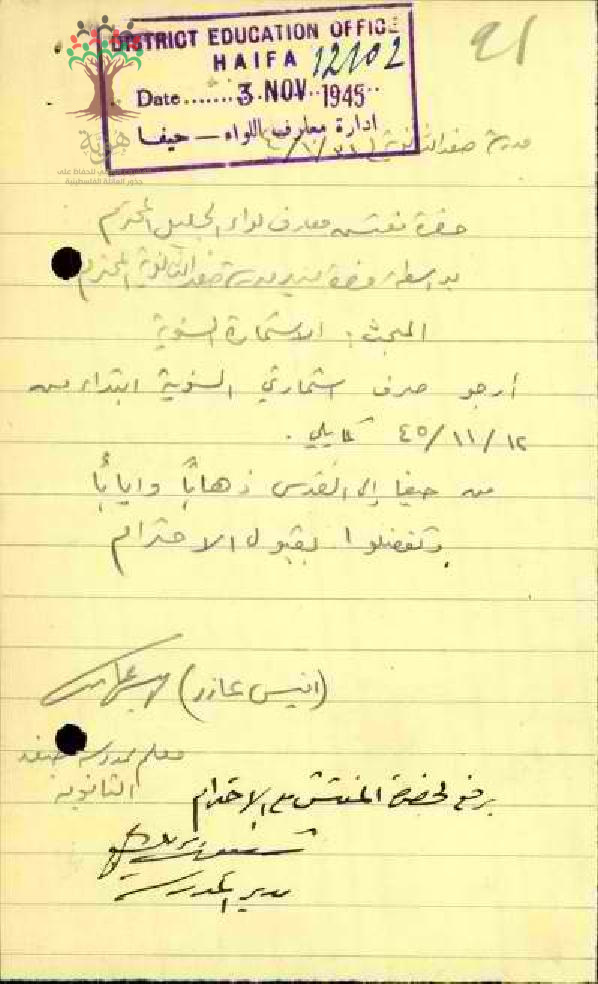 DISTRICT EDUCATION OFFICE
HAIFA 12102
Date....... 3 NOV 1945
ادارة معارف اللواء – حيفا
91
هوية
جذور العائلة الفلسطينية
مدرسة صفد الثانوية
حضرة مفتش معارف لواء الجليل المحترم
بواسطة حضرة مدير مدرسة صفد الثانوية المحترم
المبحث : الاستمارة السنوية
أرجو صرف استمارتي السنوية ابتداء من
١٢/ ١١/ ٤٥ كما يلي .
من حيفا إلى القدس ذهابًا وايابًا
وتفضلوا بقبول الاحترام
(انيس عازر)
معلم بمدرسة صفد
الثانوية
يرفع لحضرة المفتش مع الاحترام
مدير المدرسة